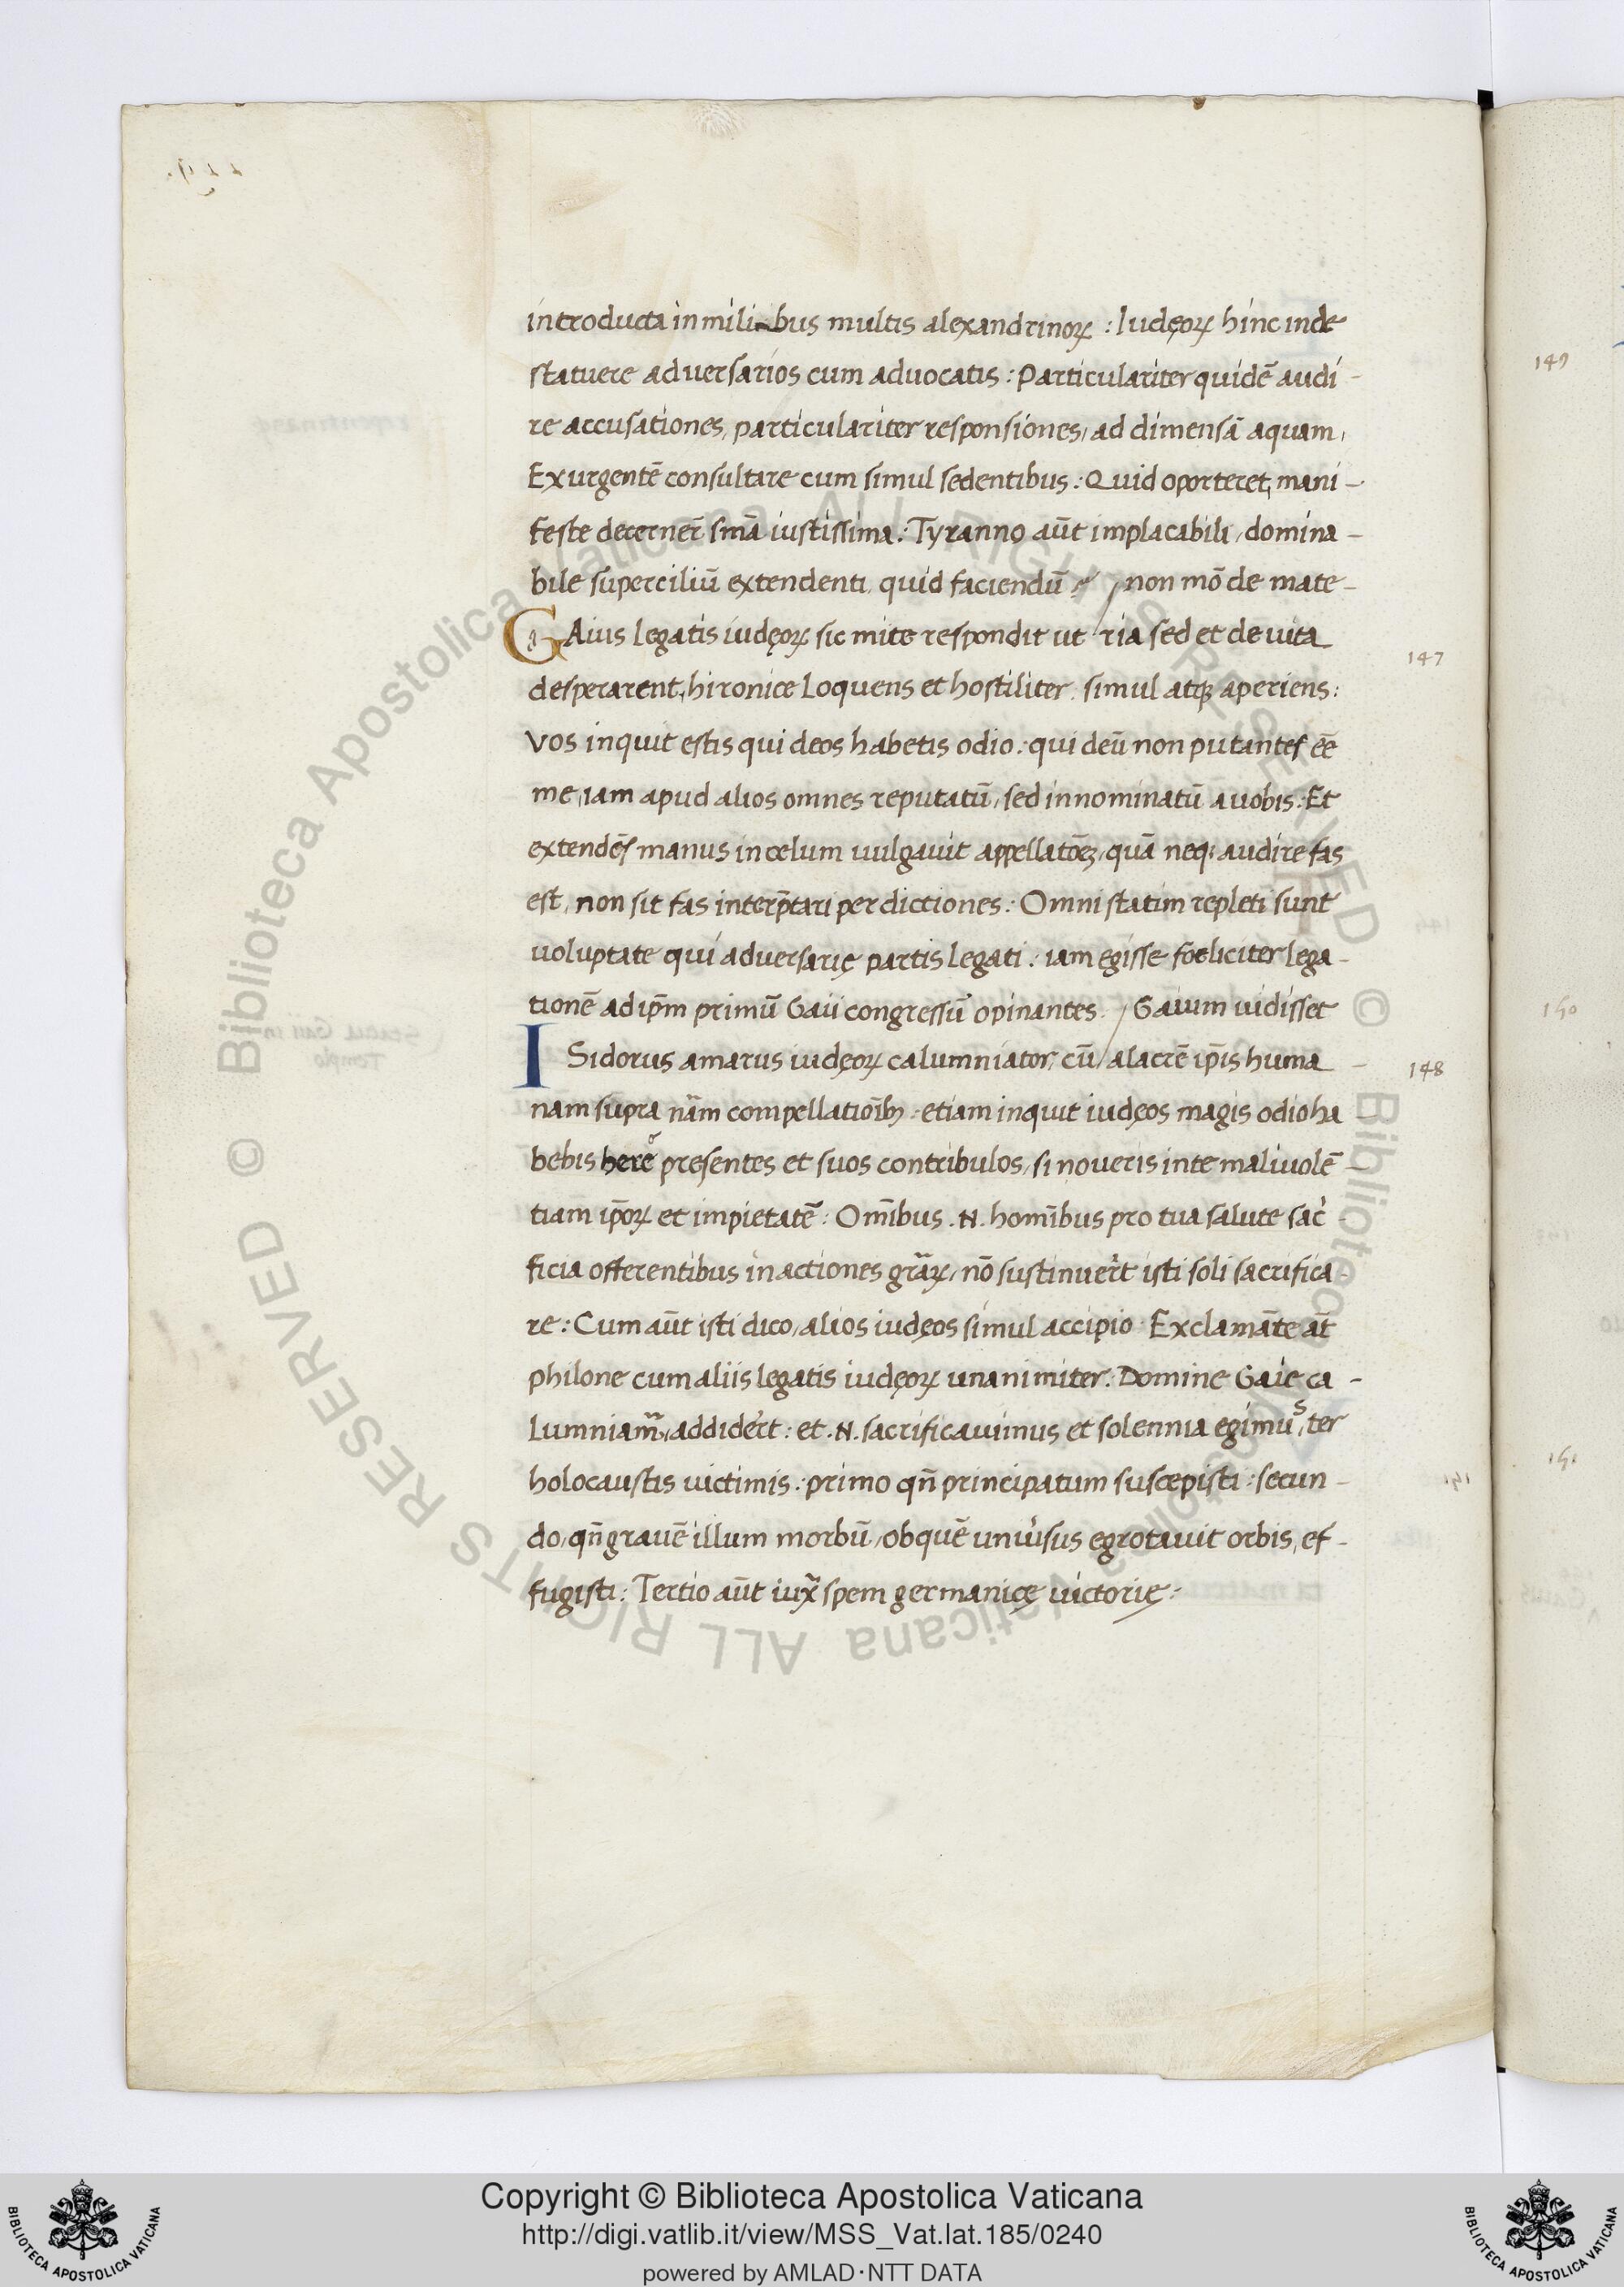 introducta in milibus multis alexandrinoꝝ : Iudęoꝝ hinc inde
statuere adversarios cum advocatis : Particulariter quidē audi-
re accusationes, particulariter responsiones, ad dimensā aquam,
Exurgentē consultare cum simul sedentibus : Quid oporteret, mani-
feste decerner̄ smā iustissima : Tyranno aūt implacabili, domina-
bile superciliū extendenti, quid faciendū / non mō de mate-
GAius legatis iudęoꝝ sic mite respondit ut ria sed et de uita
desperarent, hironice loquens et hostiliter, simul atqꝫ aperiens :
Vos inquit estis qui deos habetis odio : qui deū non putantes ēē
me, iam apud alios omnes reputatū, sed innominatū a uobis : Et
extendēs manus in celum uulgauit appellatōēꝫ, quā neqꝫ audire fas
est, non sit fas interp̄tari per dictiones : Omni statim repleti sunt
uoluptate qui adversarię partis legati : iam egisse foeliciter lega-
tionē ad ip̄m primū Gaii congressū opinantes / Gaium uidisset
ISidorus amarus iudęoꝝ calumniator, cū / alacrē ip̄is huma-
nam supra nām compellatiōibꝫ : etiam inquit iudęos magis odio ha
bebis here presentes et suos contribulos, si noueris in te maliuolē-
tiam ip̄oꝝ et impietatē : Om̄ibus .N. homībus pro tua salute sac-
ficia offerentibus in actiones gr̄aꝝ, nō sustinuer̄t isti soli sacrifica-
re : Cum aūt isti dico, alios iudęos simul accipio : Exclamāte āt
philone cum aliis legatis iudęoꝝ unanimiter : Domine Gaie ca-
lumniam̄, addider̄t : et .N. sacrificauimus et solennia egimus, ter
holocaustis uictimis : primo qn̄ principatum suscepisti : secun-
do, qn̄ grauē illum morbū, ob quē uniūsus egrotauit orbis, ef-
fugisti : Tertio aūt iux̄ spem germanicę uictorię :
147
148
149
150
151
© Biblioteca Apostolica Vaticana ALL RIGHTS RESERVED © Biblioteca Apostolica Vaticana ALL RIGHTS RESERVED
Copyright © Biblioteca Apostolica Vaticana
http://digi.vatlib.it/view/MSS_Vat.lat.185/0240
powered by AMLAD·NTT DATA
BIBLIOTECA APOSTOLICA VATICANA
BIBLIOTECA APOSTOLICA VATICANA